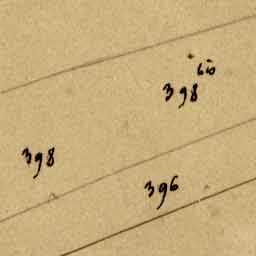 398
398
396